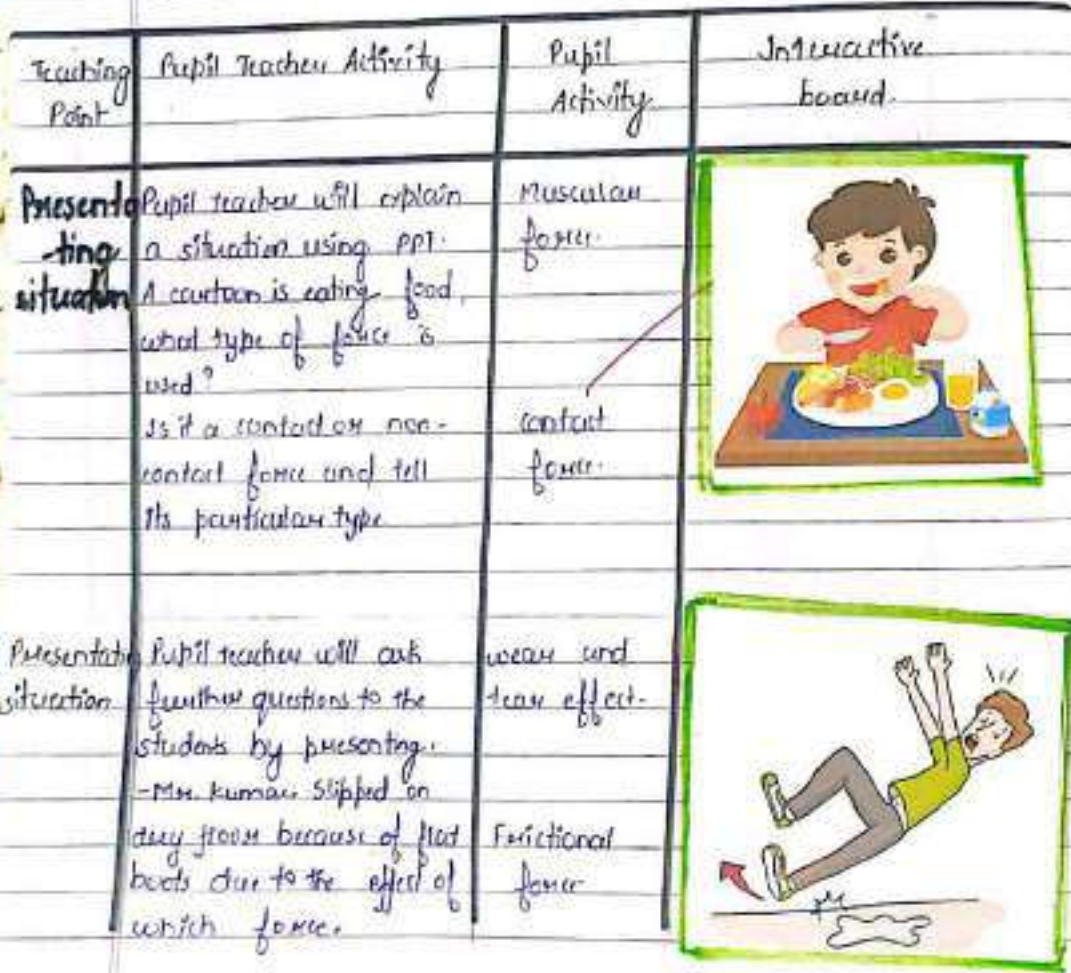 Teaching
Point
Pupil Teacher Activity
Pupil
Activity
Interactive
board.
Presenta
-ting
situation
Pupil teacher will explain
a situation using PPT.
A cartoon is eating food,
what type of force is
used?
Is it a contact or non-
contact force and tell
its particular type
Muscular
force.
contact
force.
Presentati
situation
Pupil teacher will ask
further questions to the
students by presenting.
-Mr. Kumar slipped on
dry floor because of flat
boots due to the effect of
which force.
wear and
tear effect.
Frictional
force